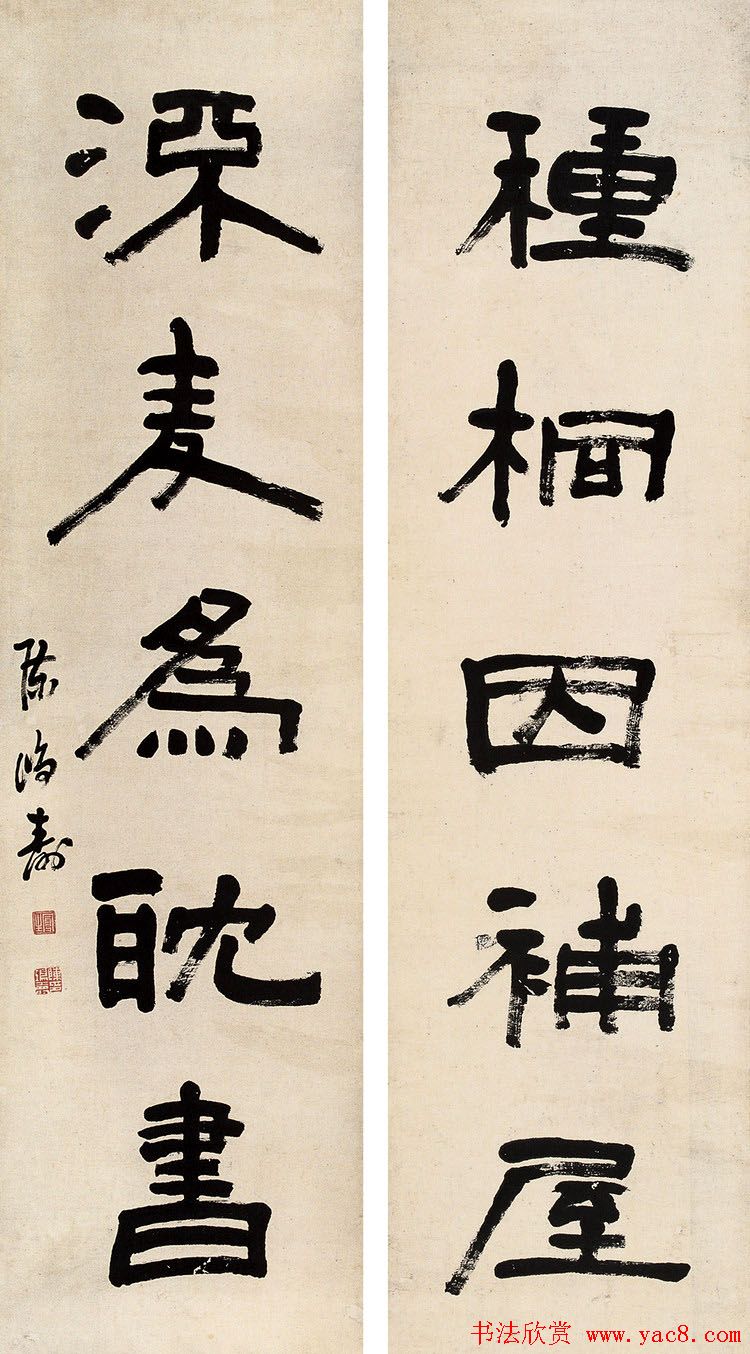 種桐因補屋
漂麦為耽書
陳鴻壽
书法欣赏 www.yac8.com